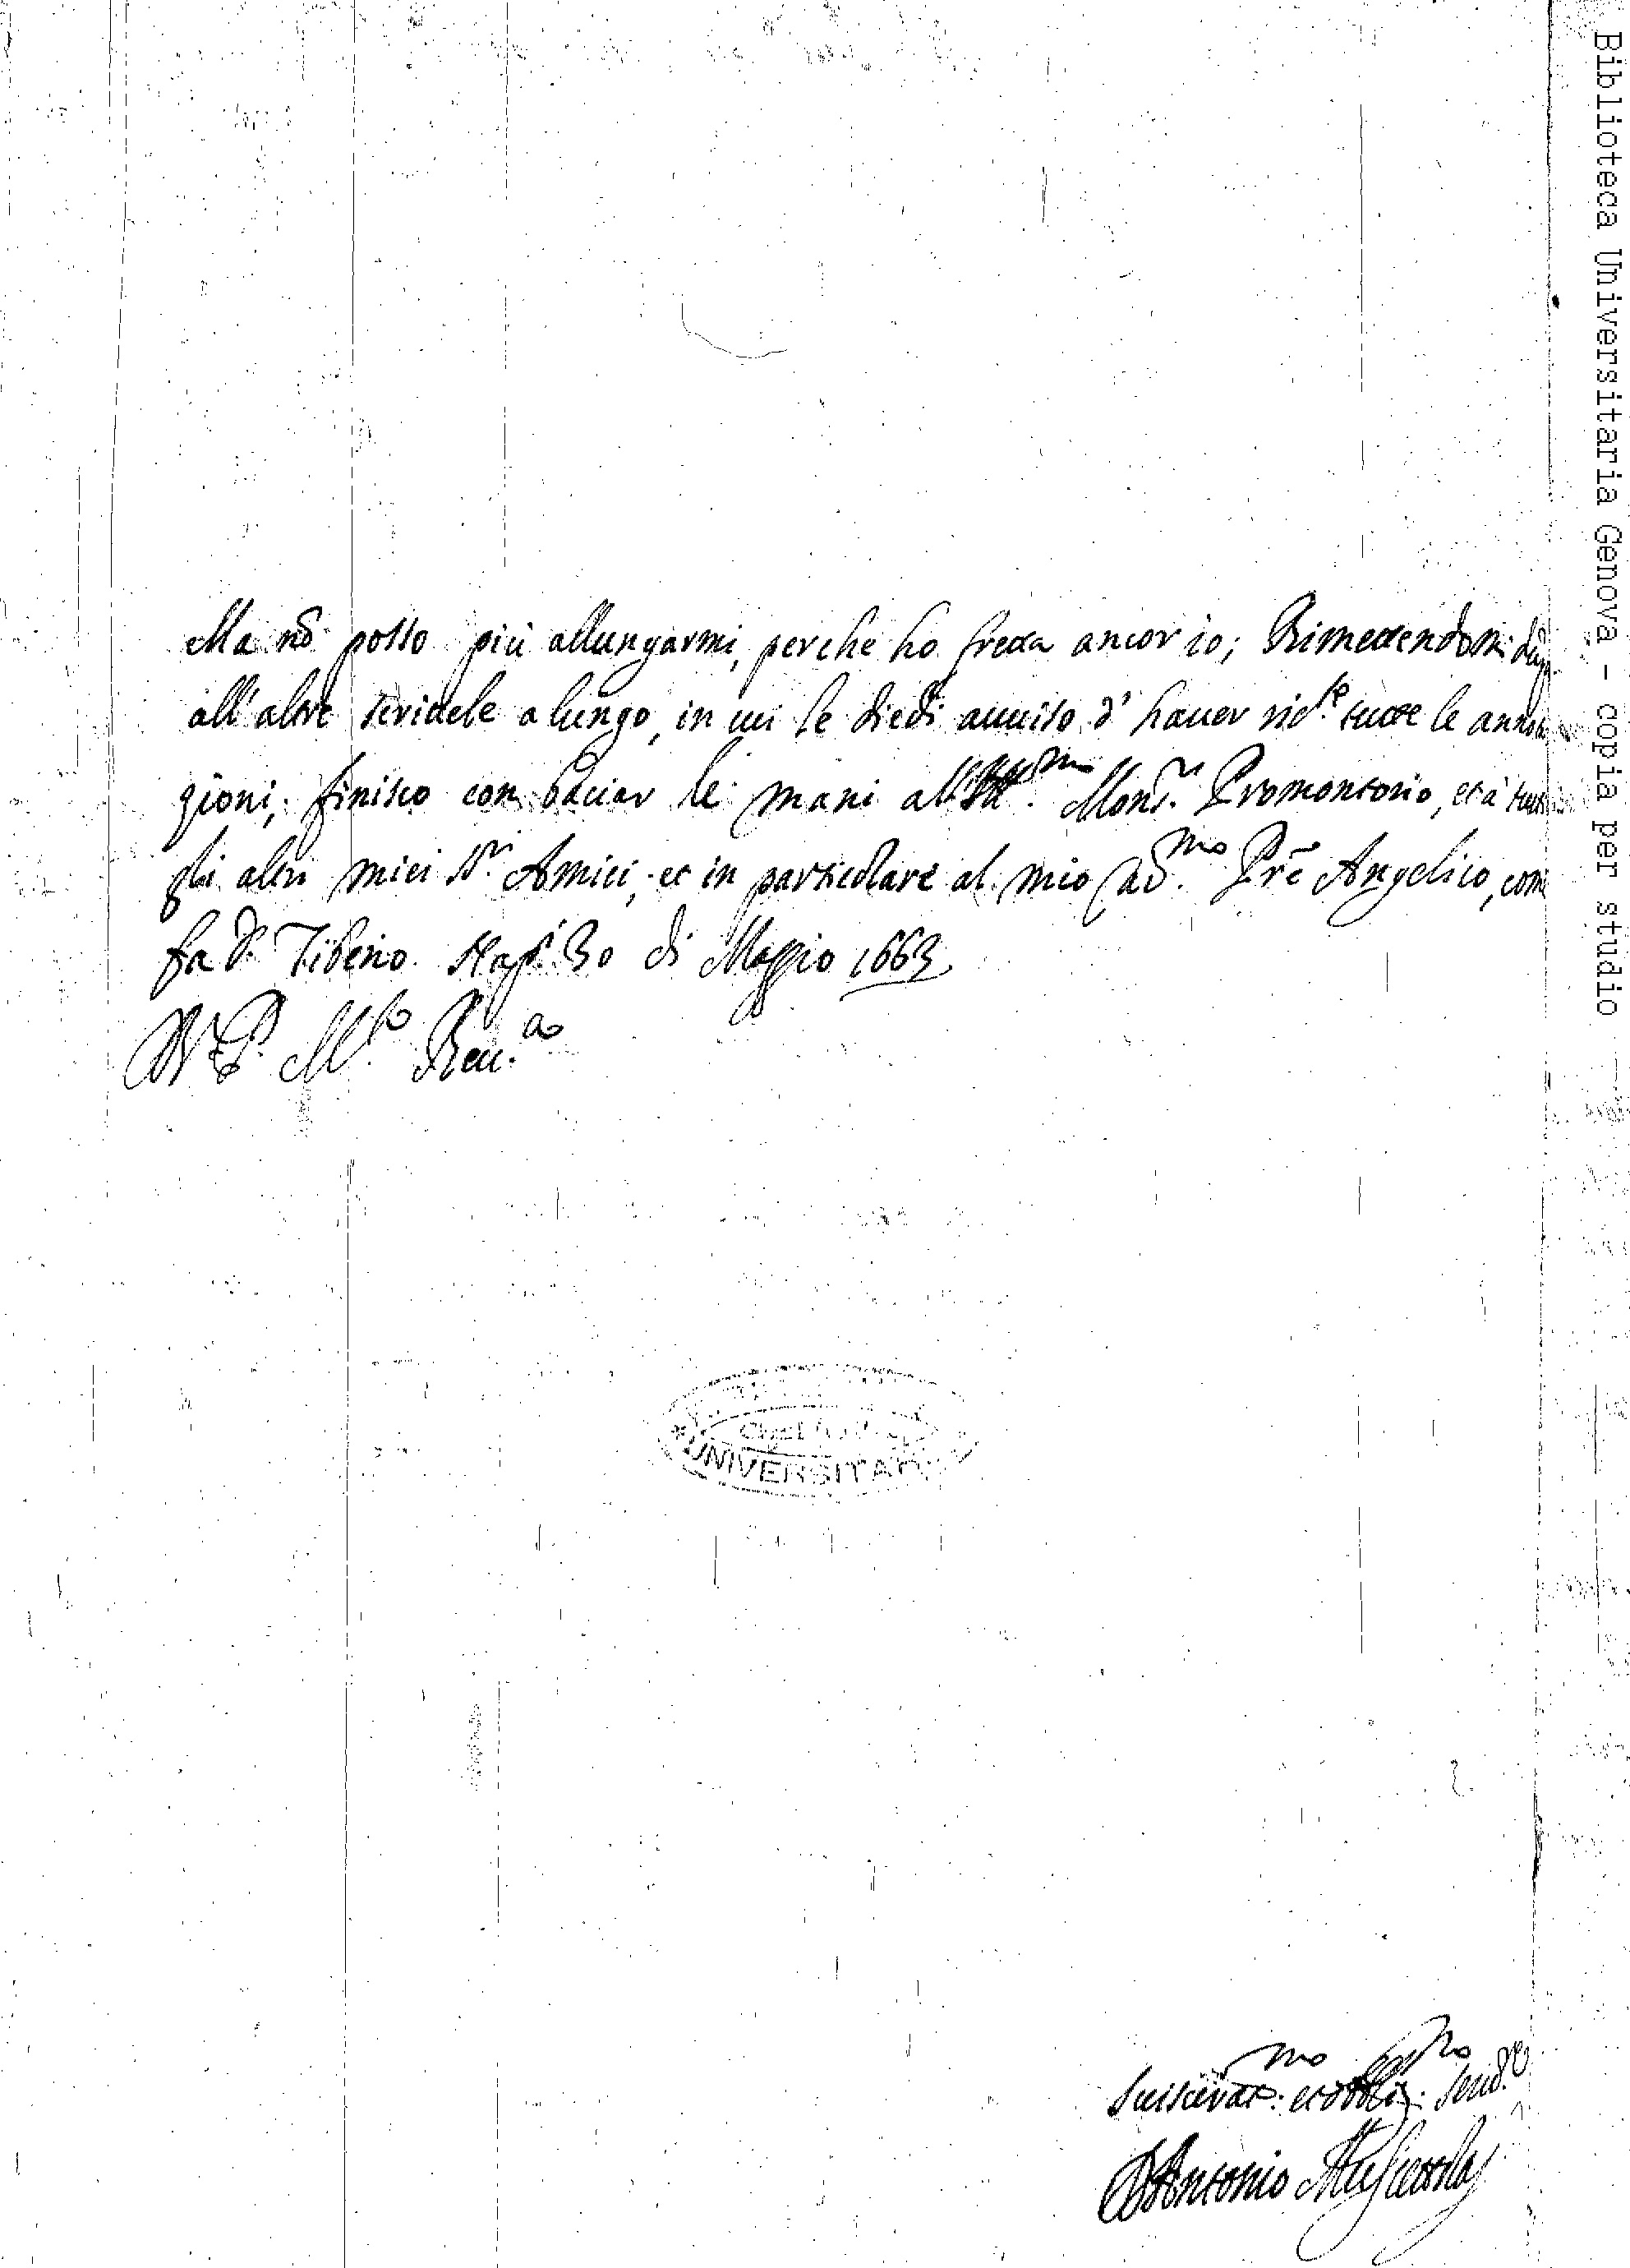 Ma nõ posso più allungarmi, perche ho fretta ancor io; Rimettendomi
all'altre scrittele a lungo, in cui le diedi auuiso d'hauer ric.te tutte le annota
zioni, finisco con baciar le mani all' Mons.r Promontorio, et à tutti
gli altri miei S.ri Amici, et in particolare al mio Pr̃e Angelico, come
fa D. Tiberio. Nap. 30 di Maggio 1663
Di V. P. M.to Reu.da
Suiscerat.mo et obblig.mo Seru.re
Antonio
UNIVERSITAR
Biblioteca Universitaria Genova - copia per studio